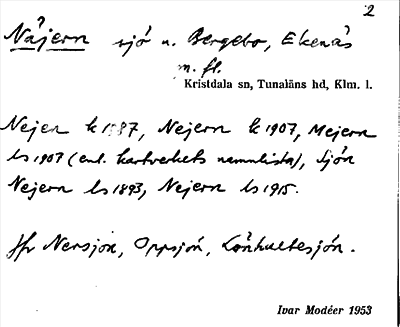 2
Näjern sjö n. Bergebo, Ekenäs
m. fl.
Kristdala sn, Tunaläns hd, Klm. l.
Nejen k 1887, Nejern k 1907, Mejern
ls 1907 (enl. kartverkets namnlista), sjön
Nejern ls 1893, Nejern ls 1915.
Jfr Nersjön, Oppsjön, Lönhultesjön.
Ivar Modéer 1953